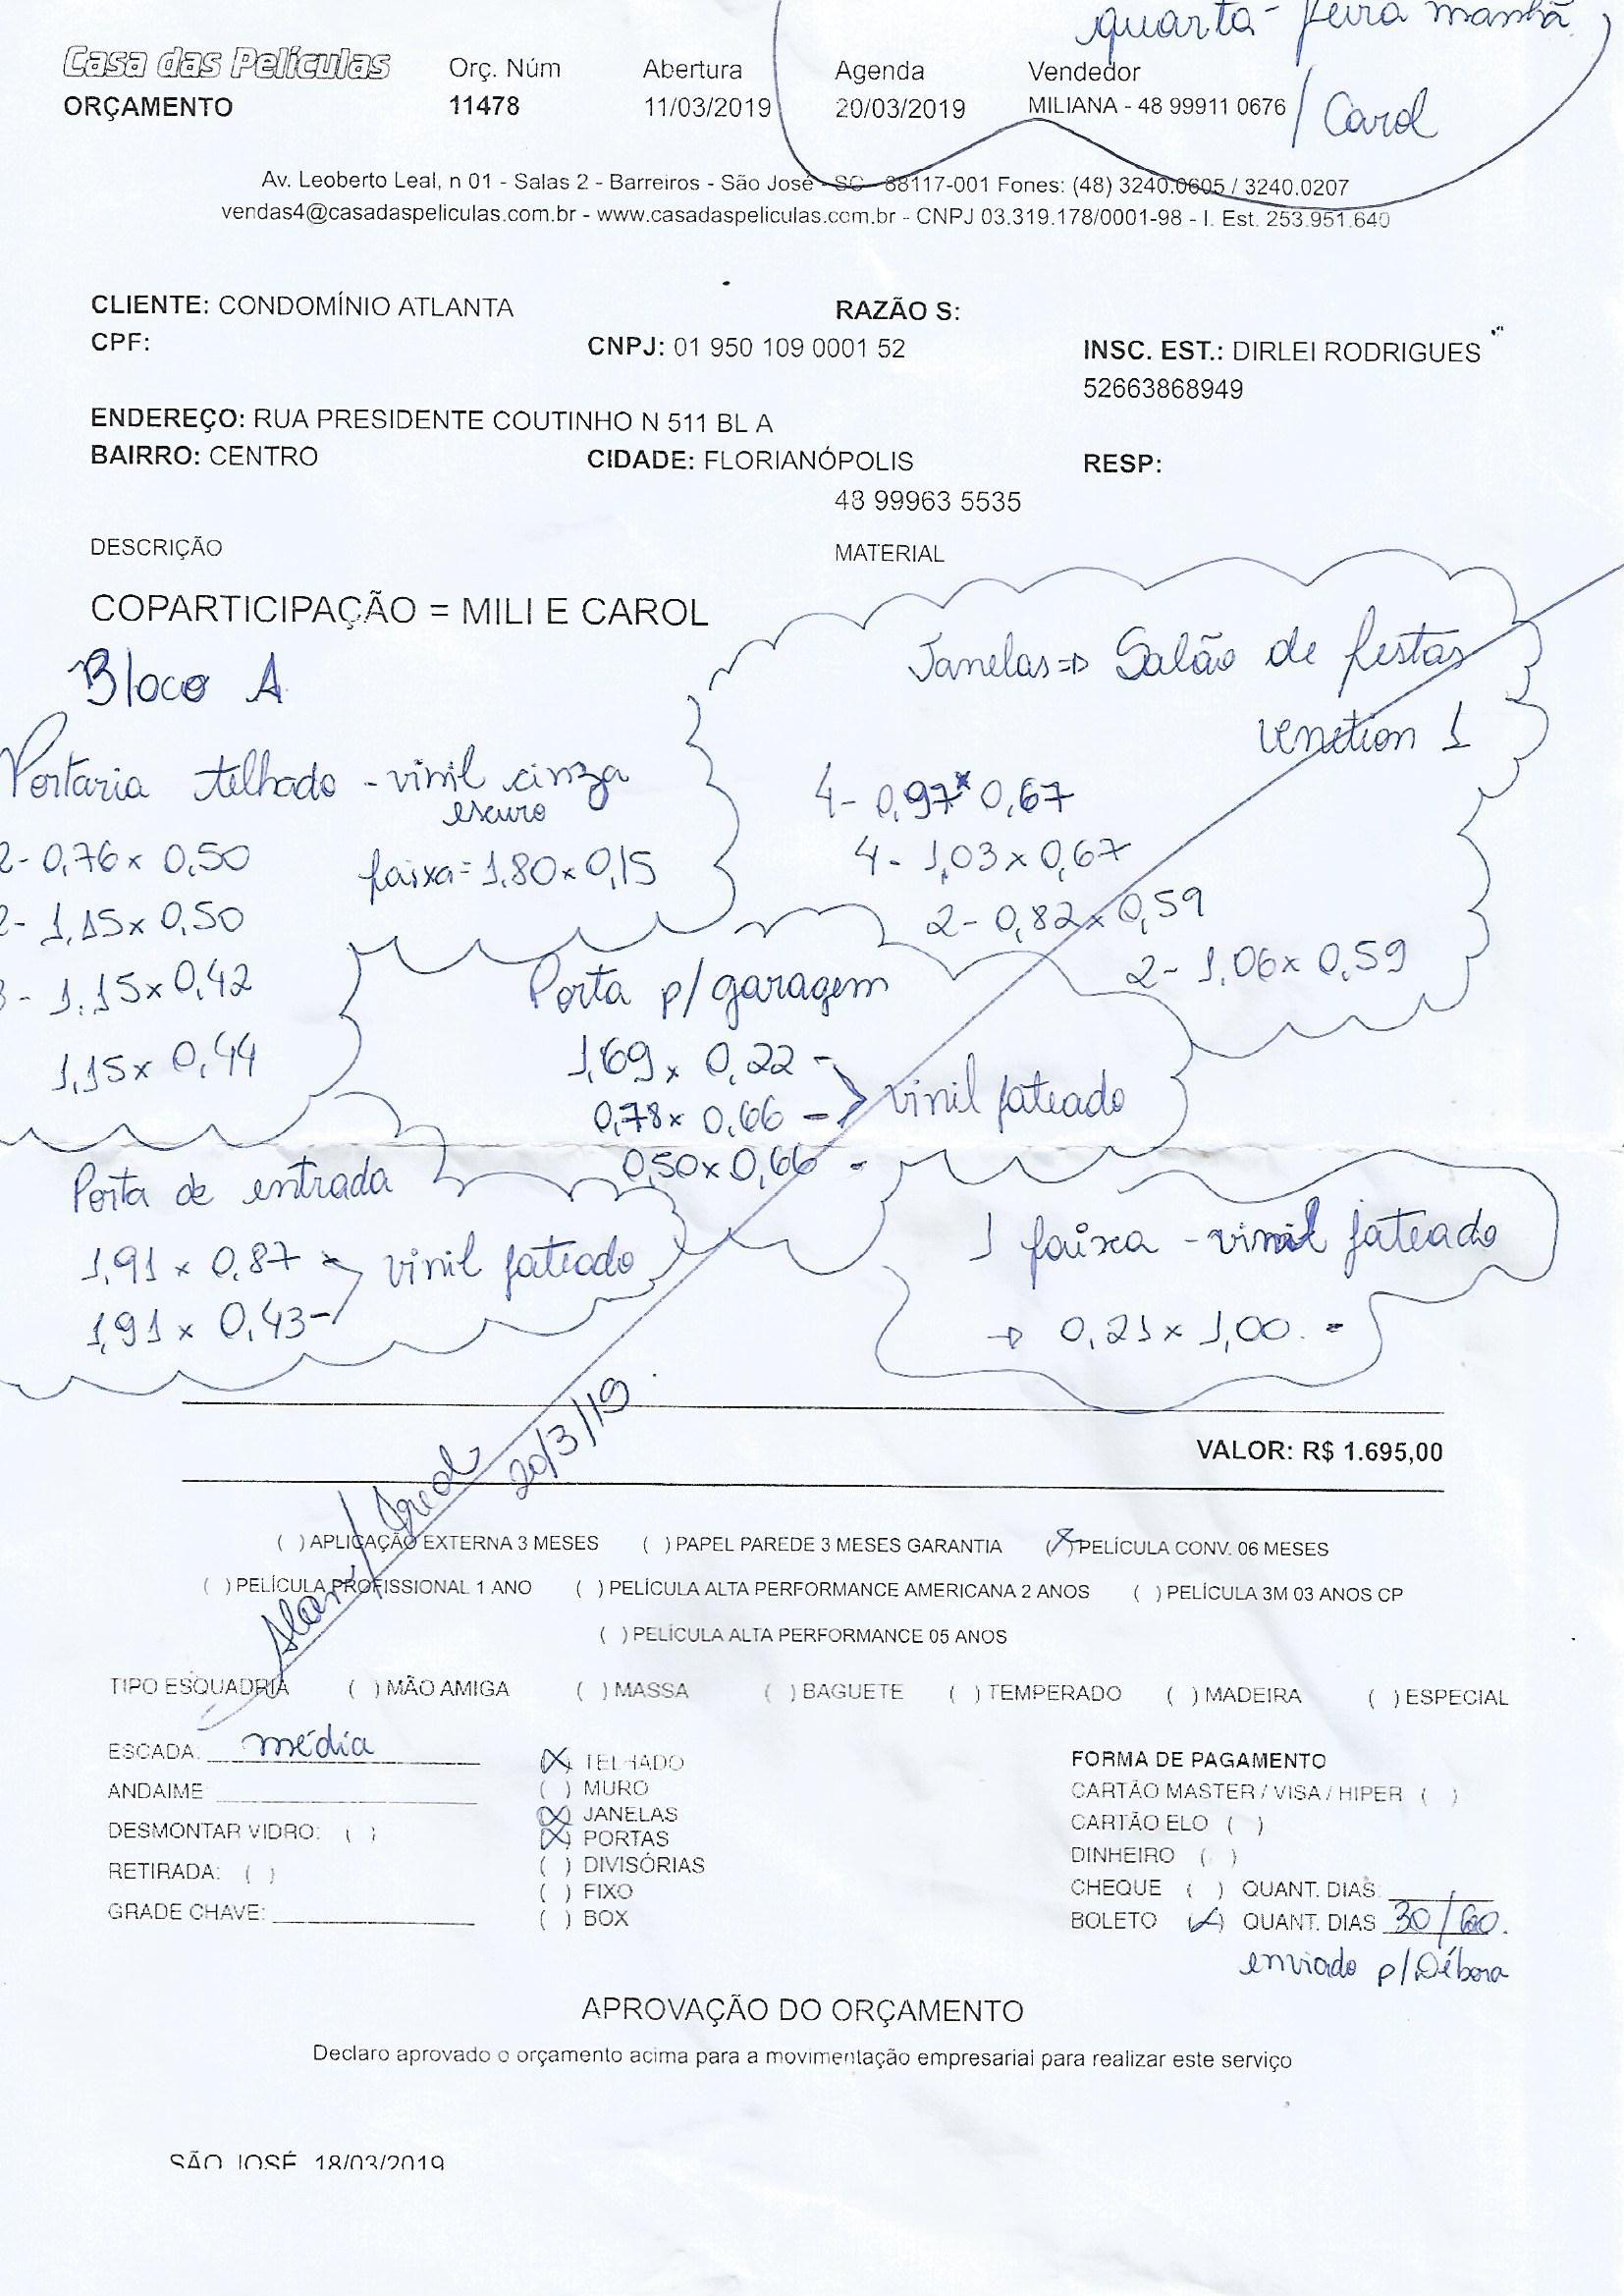 quarta-feira manhã
Casa das Películas
ORÇAMENTO
Orç. Núm
11478
Abertura
11/03/2019
Agenda
20/03/2019
Vendedor
MILIANA - 48 99911 0676 / Carol
Av. Leoberto Leal, n 01 - Salas 2 - Barreiros - São José - SC - 88117-001 Fones: (48) 3240.0605 / 3240.0207
vendas4@casadaspeliculas.com.br - www.casadaspeliculas.com.br - CNPJ 03.319.178/0001-98 - I. Est. 253.951.640
CLIENTE: CONDOMÍNIO ATLANTA
RAZÃO S:
CPF:
CNPJ: 01 950 109 0001 52
INSC. EST.: DIRLEI RODRIGUES
52663868949
ENDEREÇO: RUA PRESIDENTE COUTINHO N 511 BL A
BAIRRO: CENTRO
CIDADE: FLORIANÓPOLIS
RESP:
48 99963 5535
DESCRIÇÃO
MATERIAL
COPARTICIPAÇÃO = MILI E CAROL
Bloco A
Portaria telhado - vinil cinza
escuro
2- 0,76 x 0,50
faixa = 1,80 x 0,15
2- 1,15 x 0,50
3- 1,15 x 0,42
1,15 x 0,44
Janelas => Salão de festas
venetion 1
4- 0,97 x 0,67
4- 1,03 x 0,67
2- 0,82 x 0,59
2- 1,06 x 0,59
Porta p/ garagem
1,69 x 0,22 -
0,78 x 0,66 - > vinil jateado
0,50 x 0,66 -
Porta de entrada
1,91 x 0,87 - > vinil jateado
1,91 x 0,43 -
1 faixa - vinil jateado
→ 0,21 x 1,00. -
20/3/19
VALOR: R$ 1.695,00
( ) APLICAÇÃO EXTERNA 3 MESES ( ) PAPEL PAREDE 3 MESES GARANTIA (X) PELÍCULA CONV. 06 MESES
( ) PELÍCULA PROFISSIONAL 1 ANO ( ) PELÍCULA ALTA PERFORMANCE AMERICANA 2 ANOS ( ) PELÍCULA 3M 03 ANOS CP
( ) PELÍCULA ALTA PERFORMANCE 05 ANOS
TIPO ESQUADRIA ( ) MÃO AMIGA ( ) MASSA ( ) BAGUETE ( ) TEMPERADO ( ) MADEIRA ( ) ESPECIAL
ESCADA: média
ANDAIME
DESMONTAR VIDRO: ( )
RETIRADA: ( )
GRADE CHAVE:
(X) TELHADO
( ) MURO
(X) JANELAS
(X) PORTAS
( ) DIVISÓRIAS
( ) FIXO
( ) BOX
FORMA DE PAGAMENTO
CARTÃO MASTER / VISA / HIPER ( )
CARTÃO ELO ( )
DINHEIRO ( )
CHEQUE ( ) QUANT. DIAS:
BOLETO (X) QUANT. DIAS 30/60.
enviado p/ Débora
APROVAÇÃO DO ORÇAMENTO
Declaro aprovado o orçamento acima para a movimentação empresarial para realizar este serviço
SÃO JOSÉ, 18/03/2019